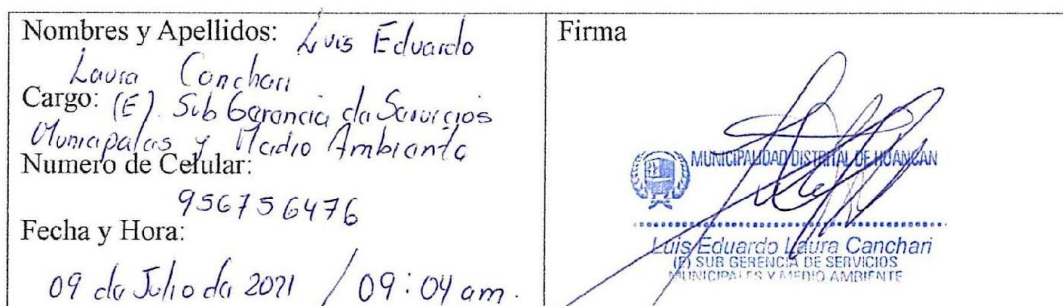 Nombres y Apellidos: Luis Eduardo
Laura Canchari
Cargo: (E). Sub Gerencia de Servicios
Municipales y Medio Ambiente
Numero de Celular:
956756476
Fecha y Hora:
09 de Julio de 2021 / 09:04 am.
Firma
MUNICIPALIDAD DISTRITAL DE HUANCAN
Luis Eduardo Laura Canchari
(E) SUB GERENCIA DE SERVICIOS
MUNICIPALES Y MEDIO AMBIENTE